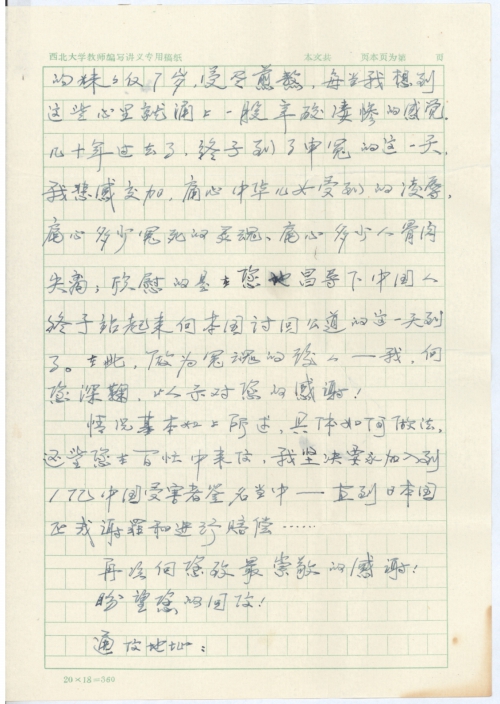 西北大学教师编写讲义专用稿纸 本文共 页本页为第 页
的妹妹仅7岁,受尽煎熬,每当我想到
这些心里就涌上一股辛酸凄惨的感觉.
几十年过去了,终于到了申冤的这一天.
我悲感交加,痛心中华儿女受到的凌辱,
痛心多少冤死的灵魂、痛心多少人骨肉
失离;欣慰的是在您地倡导下中国人
终于站起来向本国讨回公道的这一天到
了。在此,做为冤魂的 人——我,向
您深鞠,以示对您的感谢!
情况基本如上所述,具体如何做法,
这些您在百忙中来信,我坚决要求加入到
1亿中国受害者签名当中——直到日本国
正式谢罪和进行赔偿……
再次向您致最崇敬的感谢!
盼望您的回信!
通信地址:
20×18=360